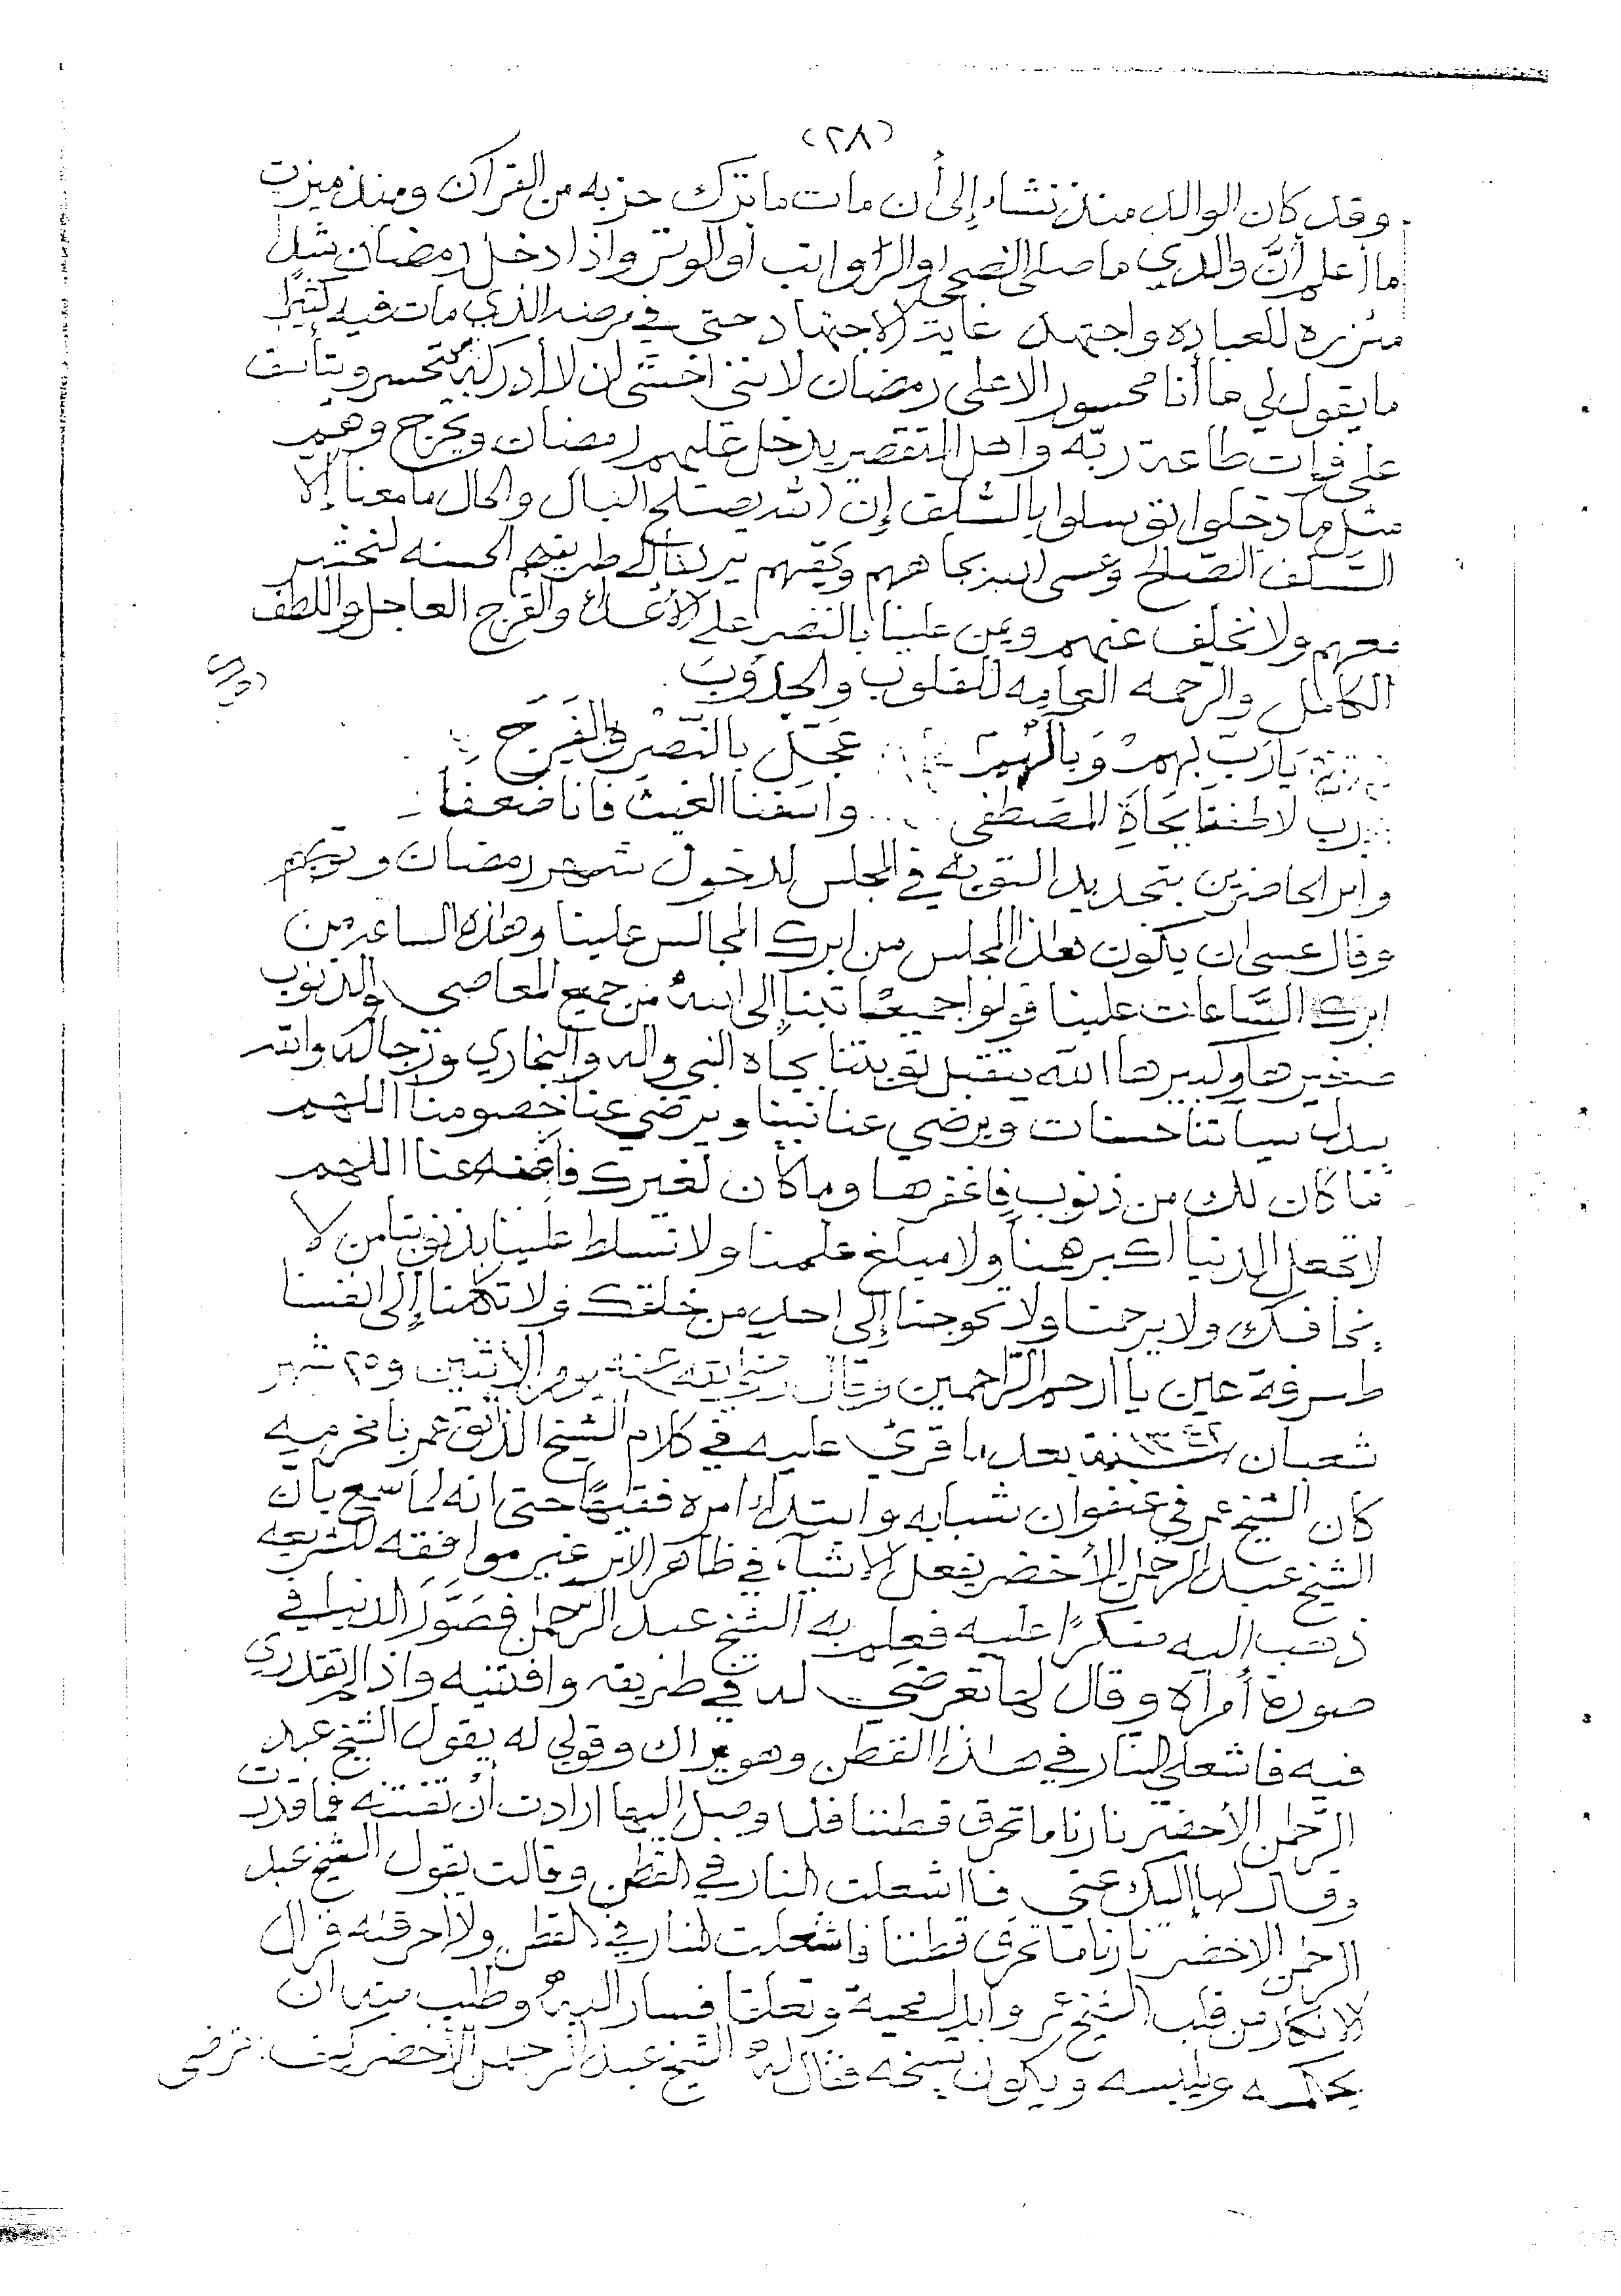 (٢٨)
وقد كان الوالد منذ نشاء إلى أن مات ما ترك حزبه من القرآن ومنذ ميزت
ما أعلم أنَّ والدي ما صلى الضحى اوالرواتب أو الوتر واذا دخل رمضان شل
مئزره للعباده واجتهد غاية الاجتهاد حتى في مرضه الذي مات فيه كثيرًا
ما يقول لي ما أنا محسور الا على رمضان لانني اخشى ان لا أدركه يتحسر ويتأسف
على فوات طاعة ربّه واهل التقصير يدخل عليهم رمضان ويخرج وهم
مثل ما دخلوا توسلوا بالسَّلف إن الله يصلح البال والحال ما معنا إلا
السلف الصّالح وعسى الله بجاههم وحقهم يردنا الى طريقهم الحسنه لنحشر
معهم ولا نخلف عنهم ويمن علينا بالنصر على الأعداء والفرج العاجل واللطف
الكامل والرحمه العامه للقلوب والجدُوب
يَارَبّ بهم وَبآلهم عَجّل بالنّصر والفَرَج
رب لاطفنا بجَاهِ المصطفى واسقنا الغيث فانا ضعفا
وامر الحاضرين بتجديد التوبه في المجلس لدخول شهر رمضان وتوبهم
وقال عسى ان يكون هذا المجلس من ابرك المجالس علينا وهذه الساعه من
ابرك السَّاعات علينا قولوا جميعًا تبنا إلى الله من جميع المعاصي والذنوب
صغيرها وكبيرها الله يتقبل توبتنا بجاه النبي واله والبخاري ورجاله والله
يبدل سيأتنا حسنات ويرضي عنا نبينا ويرضي عنا خصومنا اللهم
ما كان لك من ذنوب فاغفرها وما كان لغيرك فاعنه عنا اللهم
لا تجعل الدنيا اكبر همنا ولا مبلغ علمنا ولا تسلط علينا بذنوبنا من لا
يخافك ولا يرحمنا ولا تحوجنا إلى احد من خلقك ولا تكلنا إلى انفسنا
طرفة عين يا ارحم الرّاحمين وقال رضي الله عنه يوم الاثنين و٢٥ شهر
شعبان سنة بعد ما قرئ عليه في كلام الشيخ الذائق عمر بامخرميه
كان الشيخ عمر في عنفوان شبابه وابتداء امره فقيهًا حتى انه لما سمع بان
الشيخ عبد الرحمن الأخضر يفعل الاشياء في ظاهر الامر غير موافقه للشريعه
ذهب اليه منكرًا عليه فعلم به الشيخ عبد الرّحمن فصَوَّرَ الدنيا في
صورة أمرأه وقال لها تعرضي له في طريقه وافتنيه واذا لم تقدري
فيه فاشعلي النار في هذا القطن وهو يراك وقولي له يقول الشيخ عبد
الرّحمن الأخضر نارنا ما تحرق قطننا فلما وصل اليها ارادت أن تفتنه فما قدرت
وقال لها إليك عني فا اشعلت النار في القطن وقالت يقول الشيخ عبد
الرحمن الاخضر نارنا ما تحرق قطننا فاشعلت النار في القطن ولا احرقته فزال
الانكار من قلب الشيخ عمر وأبدله محبة وتعلقا فسار اليه وطلب منه ان
يحكمه ويلبسه ويكون شيخه فقال له الشيخ عبد الرحمن الأخضر كيف ترضى